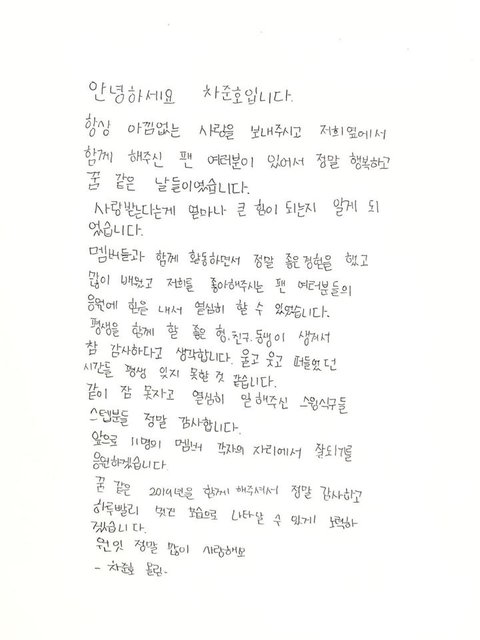 안녕하세요 차준호입니다.
항상 아낌없는 사랑을 보내주시고 저희옆에서
함께 해주신 팬 여러분이 있어서 정말 행복하고
꿈 같은 날들이었습니다.
사랑받는다는게 얼마나 큰 힘이 되는지 알게 되
었습니다.
멤버들과 함께 활동하면서 정말 좋은경험을 했고
많이 배웠고 저희를 좋아해주시는 팬 여러분들의
응원에 힘을 내서 열심히 할 수 있었습니다.
평생을 함께 할 좋은 형,친구,동생이 생겨서
참 감사하다고 생각합니다. 울고 웃고 떠들었던
시간들 평생 잊지 못할것 같습니다.
같이 잠 못자고 열심히 일해주신 스윙식구들
스텝분들 정말 감사합니다.
앞으로 11명의 멤버 각자의 자리에서 잘되기를
응원하겠습니다.
꿈 같은 2019년을 함께 해주셔서 정말 감사하고
하루빨리 멋진 모습으로 나타날 수 있게 노력하
겠습니다.
원잇 정말 많이 사랑해요
- 차준호 올림-